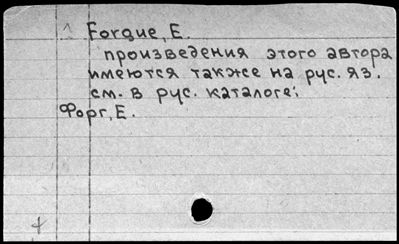 Forgue, E.
произведения этого автора
имеются также на рус. яз.
см. в рус. каталоге:
Форг, Е.